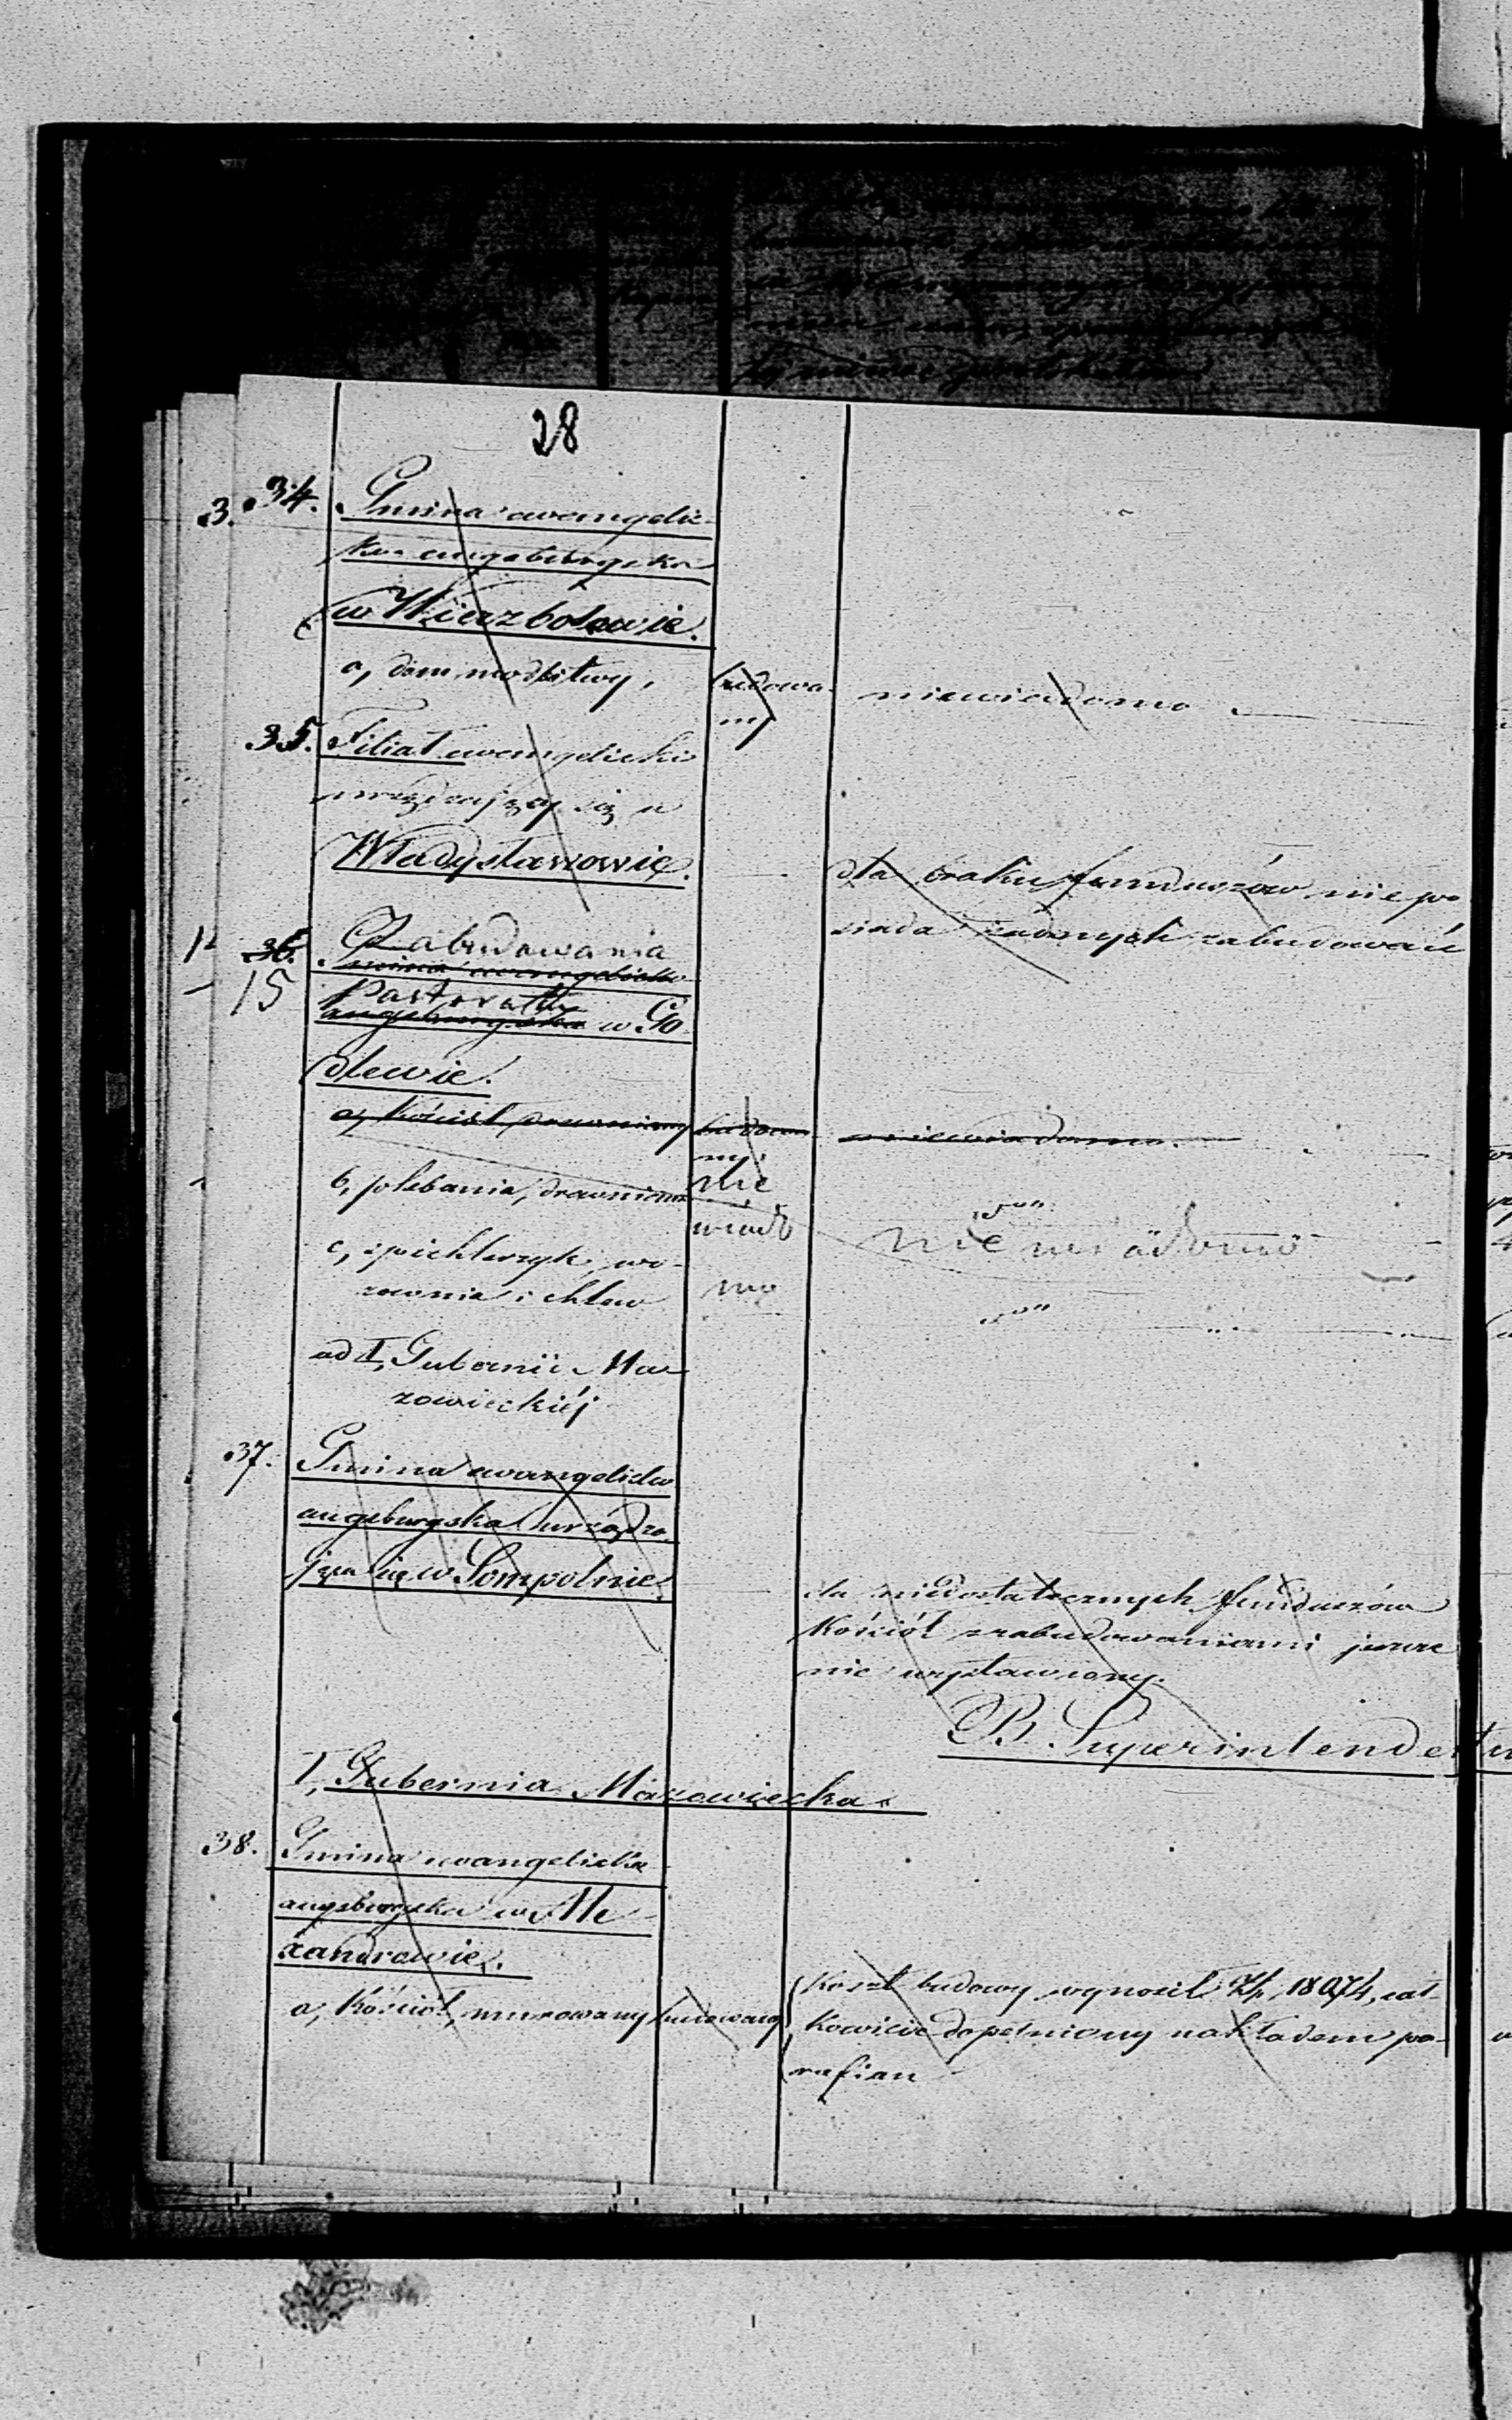 28
3. 34. Gmina ewangelic-
ko augsburgska
w Wierzbołowie.
a, dom modlitwy, budowa- niewiadomo
ny
35. Filiał ewangelicki
urządzający się w
Władysławowie.
dla braku funduszów nie po
siada żadnych zabudowań
36. Zabudowania
Gmina ewangelicko
15 Pastoratu
augsburgska w Go
dlewie.
a, kościół drewniany budowa- niewiadomo
ny.
b, plebania, drewniana nie
wiado niewiadomo
c, spichlerzyk, wo-
zownia i chlew mo
ad I, Gubernii Ma
zowieckiéj
37. Gmina ewangelicko
augsburgska urządza
jąca się w Sompolnie.
dla niedostatecznych funduszów
Kościół z zabudowaniami jeszcze
nie wystawiony.
B. Superintendentu
I, Gubernia Mazowiecka.
38. Gmina ewangelicka
augsburgska w Ale
xandrowie.
a, Kościół, murowany budowany
Koszt budowy wynosił Złp. 18074, cał-
kowicie dopełniony nakładem pa-
rafian